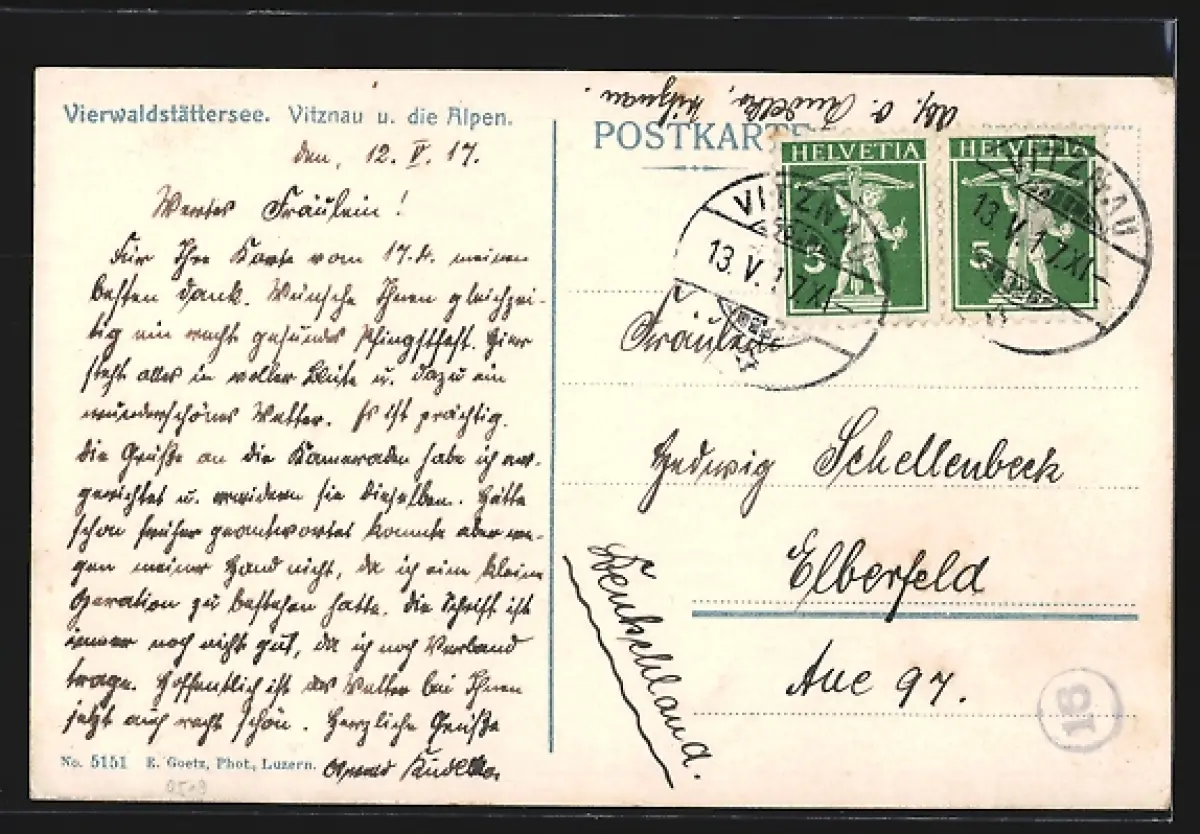 Vierwaldstättersee. Vitznau u. die Alpen.
den, 12. V. 17.
Wertes Fräulein!
Für Ihre Karte vom 17.4. meinen
besten Dank. Wünsche Ihnen gleichzei-
tig ein recht gesundes Pfingstfest. Hier
steht alles in voller Blüte u. dazu ein
wunderschönes Wetter. Es ist prächtig.
Die Grüße an die Kameraden habe ich aus-
gerichtet u. erwidern sie dieselben. Hätte
schon früher geantwortet konnte aber we-
gen meiner Hand nicht, da ich eine kleine
Operation zu bestehen hatte. Die Schrift ist
immer noch nicht gut, da ich noch Verband
trage. Hoffentlich ist das Wetter bei Ihnen
jetzt auch recht schön. Herzliche Grüße
No. 5151 E. Goetz, Phot., Luzern.
Abs. O. Kudelka, Vitznau.
POSTKARTE
HELVETIA
5
HELVETIA
5
VITZNAU
13.V.17.XI-
VITZNAU
13.V.17.XI-
Fräulein
Hedwig Schellenbeck
Elberfeld
Aue 97.
Deutschland.
16